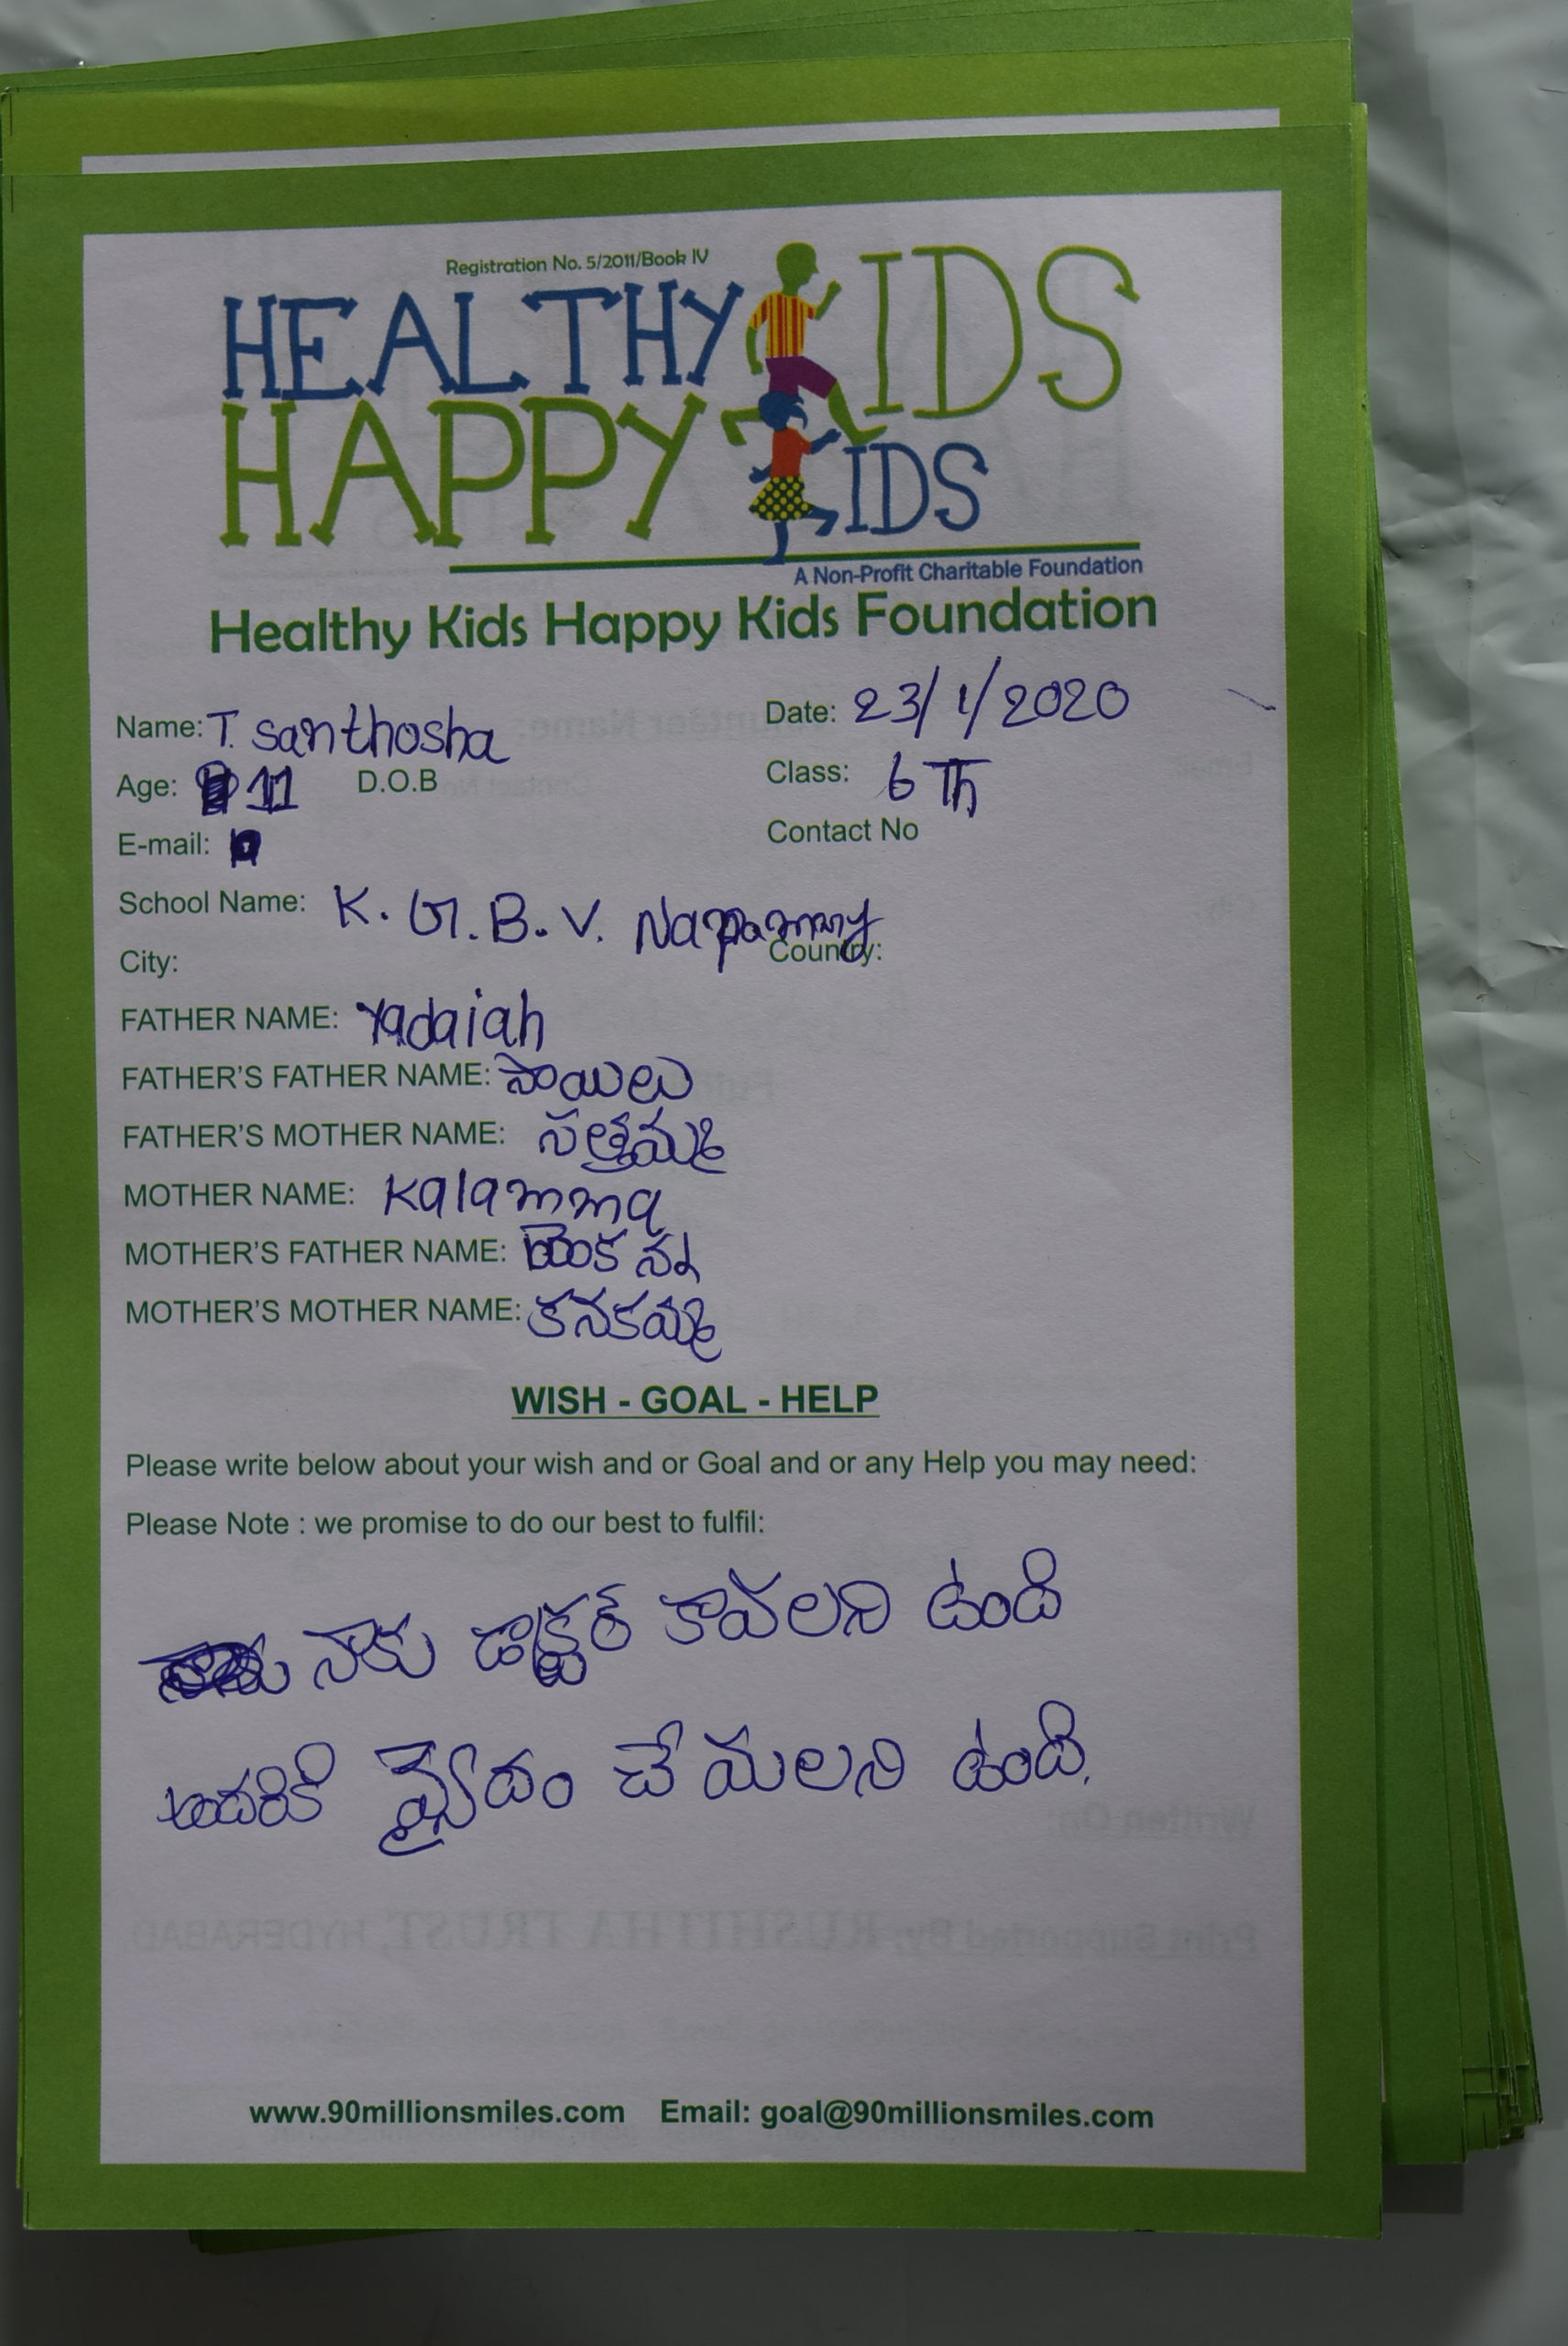 Registration No. 5/2011/Book IV
HEALTHY KIDS
HAPPY KIDS
A Non-Profit Charitable Foundation
Healthy Kids Happy Kids Foundation
Name: T. Santhosha Date: 23/1/2020
Age: 11 D.O.B Class: 6 Th
E-mail: Contact No
School Name: K. G. B. V.
City: Country:
FATHER NAME: Yadaiah
FATHER'S FATHER NAME: సాయిలు
FATHER'S MOTHER NAME: సత్తమ్మ
MOTHER NAME: Kalamma
MOTHER'S FATHER NAME:
MOTHER'S MOTHER NAME: కనకమ్మ
WISH - GOAL - HELP
Please write below about your wish and or Goal and or any Help you may need:
Please Note : we promise to do our best to fulfil:
నాకు డాక్టర్ కావలని ఉంది
అందరికి వ్యైదం చేమలని ఉంది.
www.90millionsmiles.com Email: goal@90millionsmiles.com